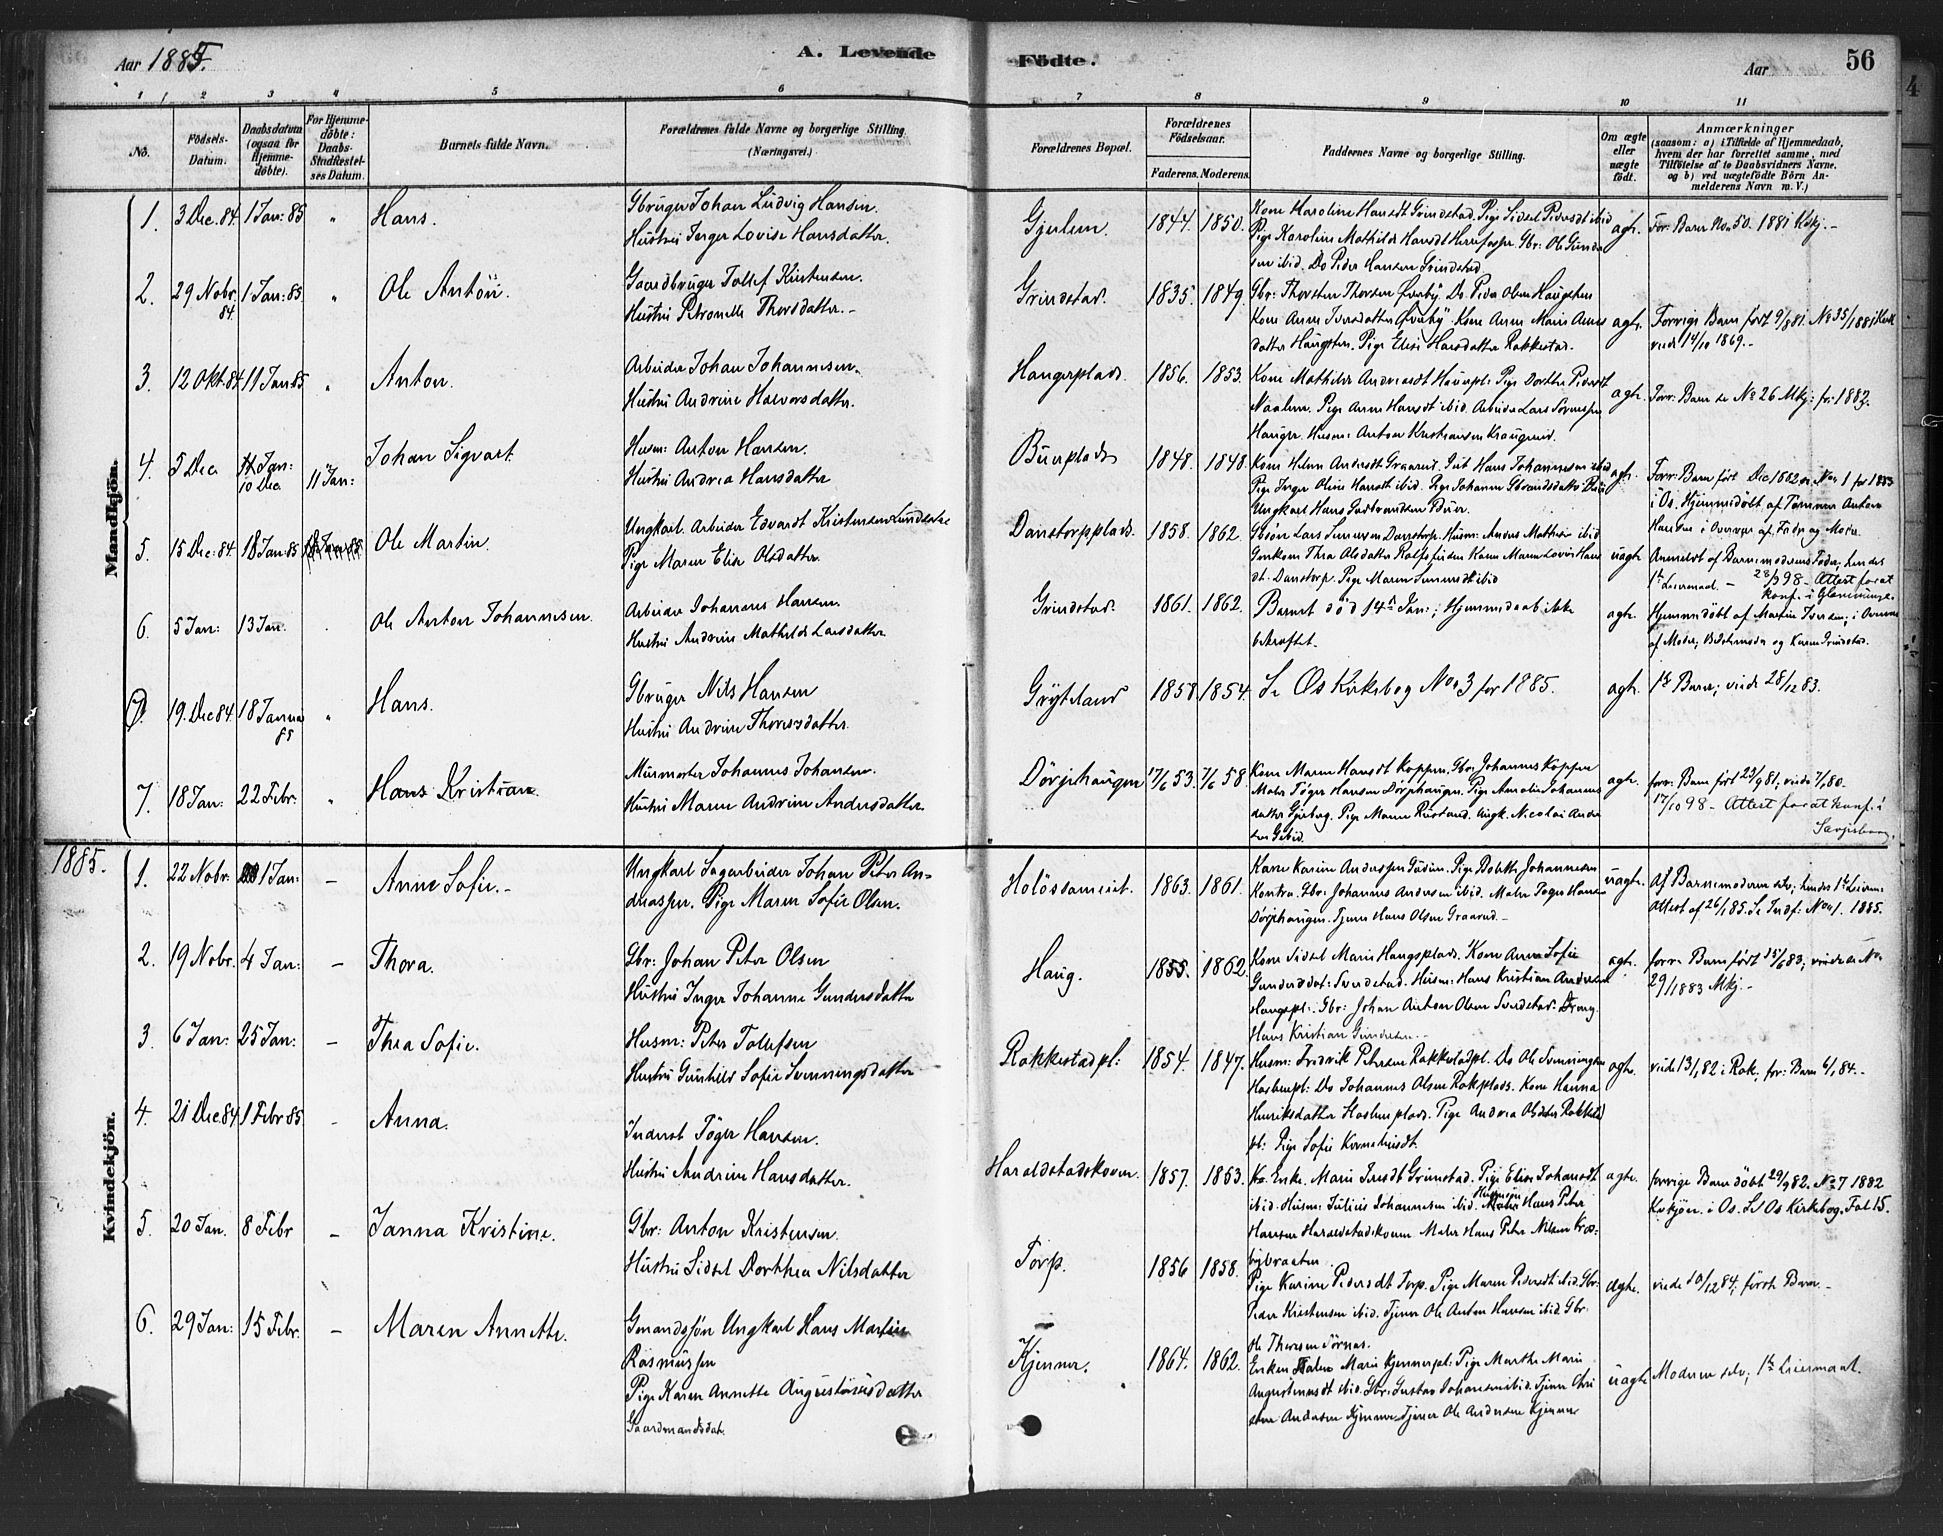 Aar 1885.
A. Levende Födte.
Aar
56
1 2 3 4 5 6 7 8 9 10 11
No.
Födsels-Datum.
Daabsdatum (ogsaa for Hjemmedöbte).
For Hjemmedöbte: Daabs-Stadfæstelses Datum.
Barnets fulde Navn.
Forældrenes fulde Navne og borgerlige Stilling. (Næringsvei.)
Forældrenes Bopæl.
Forældrenes Födselsaar.
Faderens. Moderens.
Faddernes Navne og borgerlige Stilling.
Om ægte eller uægte födt.
Anmærkninger
(saasom: a) i Tilfælde af Hjemmedaab, hvem der har forrettet samme, med Tilföielse af to Daabsvidners Navne, og b) ved uægtefödte Börn Anmelderens Navn m. V.)
Mandkjön.
1. 3 Dec. 84. 1 Jan: 85 " Hans.
Gbruger Johan Ludvig Hansen.
Hustru Inger Lovise Hansdatter.
Gjulem. 1844. 1850.
Kone Karoline Hansdt Grindstad. Pige Sidsel Pedersdt ibid
Pige Karoline Mathilde Hansdt Herrefosser. Gbr: Ole Gunder
sen ibid. Do Peder Hansen Grindstad
ægte. For: Barn No. 50. 1881 Kvkj. -
2. 29 Nobr. 84. 1 Jan: 85 " Ole Anton.
Gaardbruger Tollef Kristensen.
Hustru Petronelle Thorsdatter. -
Grindstad. 1835. 1849.
Gbr: Thorsten Thorsen Overby. Do Peder Olsen Haugsten
Kone Anne Iversdatter Overby. Kone Anne Marie Arnes
datter Haugsten. Pige Elise Hansdatter Rakkestad.
ægte. Forrige Barn født 9/8 81. No 35/1881
viede 14/10 1869. -
3. 12 Okt. 84 11 Jan 85 " Anton.
Arbeider Johan Johannesen.
Hustru Andrine Halvorsdatter.
Haugerplads. 1856. 1853.
Kone Mathilde Andreasdt Hauerpl: Pige Dorthe Pedersdt
Naalem. Pige Anne Hansdt ibid. Arbeider Lars Sörensen
Hauger. Husm: Anton Kristiansen
ægte. Forr: Barn se No 26 Mkj: for 1882.
4. 5 Dec. 10 Dec. 11 Jan: Johan Sigvart
Husm: Anton Hansen.
Hustru Andrea Hansdatter
Buerplads 1848. 1848.
Kone Helene Andersdt Graarud. Hans Johannesen ibid
Pige Inger Oline Hansdt ibid. Pige Johanne
Ungkarl Hans Buer.
ægte. Forr: Barn født Dec 1882 se No 1 for 1883
i Os. Hjemmedöbt af Tömmer Anton
Hansen i Overvær af Fader og Moder
5. 15 Dec: 84 18 Jan: 85 Ole Martin.
Ungkarl Arbeider Edvardt Kristensen
Pige Maren Elise Olsdatter.
Danstorpplads. 1858. 1862.
Gbsön Lars Danstorp. Husm: Anders Mathisen ibid
Thea Olsdatter Kone Maren Lovise Hans
dt. Danstorp. Pige Maren ibid
uægte Anmeldt af Barnemoderens Fader; hendes
1ste Leiermaal - 28/9 98 - Attest for at
konf. i Glemminge.
6. 5 Jan: 13 Jan. Ole Anton Johannesen.
Arbeider Johannes Hansen.
Hustru Andrine Mathilde Larsdatter
Grindstad. 1861. 1862.
Barnet död 14de Jan:; Hjemmedaab ikke
bekræftet.
ægte. Hjemmedöbt af Martin Iversen; i Overvær
af Moder, Bedstemoder og Karen Grindstad.
7. 19. Dec 84 18 Januar 85 " Hans.
Gbruger Nils Hansen
Hustru Andrine Thoresdatter.
Gryteland 1858 1854.
Se Os Kirkebog No. 3 for 1885.
ægte. 1ste Barn; viede 28/12 83.
7. 18 Jan: 22 Febr: " Hans Kristian.
Murmester Johannes Johansen.
Hustru Maren Andrine Andersdatter
Dörjehaugen 17/6 53. 7/6 58.
Kone Maren Hansdt Koppen. Gbr. Johannes Koppen
Maler Töger Hansen Dörjehaugen. Pige Amalie Johannes
datter Gjeberg. Pige Maren Rustand. Ungk. Nicolai Ander
sen ibid.
ægte. forr: Barn født 23/9 81, viede 7/1 80.
17/10 98 - Attest for at konf. i
Sarpsborg.
1885.
Kvindekjön.
1. 22 Nobr: 1 Jan: - Anne Sofie. -
Ungkarl Sagarbeider Johan Peter An-
dreassen. Pige Maren Sofie Olsen.
Holössameiet. 1863. 1861.
Karen Karine Andersen Pige Bolette Johannesen
Kontra. Gbr: Johannes Andersen ibid. Maler Töger Hansen
Dörjehaugen. Tjener Hans Olsen Graarud -
uægte. Af Barnemoderen selv; hendes 1ste Leierm:
Attest af 26/1 85. Se Indf: No 1. 1885.
2. 19 Nobr. 4 Jan: - Thora.
Gbr: Johan Peter Olsen
Hustru Inger Johanne Gundersdatter
Haug. 1855. 1862.
Kone Sidsel Marie Haugsplads. Kone Anne Sofie
Gundersdt: Sverdstad. Husm: Hans Kristian Andersen
Haugspl: Gbr: Johan Anton Olsen Sverdstad. Dreng
Hans Kristian Gundersen.
ægte. forr. Barn født 15/6 83; viede se No
29/1883 Mkj. -
3. 6 Jan: 25 Jan: - Thea Sofie.
Husm: Peter Tollefsen
Hustru Gunhild Sofie Svenningsdatter
Rakkestadpl: 1854. 1847.
Husm: Fredrik Petersen Rakkestadpl. Do Ole Svenningsen
Haslempl: Do Johannes Olsen Rakplads. Kone Hanna
Henriksdatter Haslemplads. Pige Andrea Olsdatter Rakkest
pl: Pige Sofie Korneliusdt.
ægte. viede 13/1 82 i Rak, for: Barn 6/1 84. -
4. 21 Dec 84 1 Febr 85. - Anna.
Inderst Töger Hansen.
Hustru Andrine Hansdatter.
Haraldstadskoven. 1857. 1863.
Enke Marie Iversdt Grimstad. Pige Elise Johansdt
ibid. Husm: Julius Johannesen ibid. Husmand Hans Peter
Hansen Haraldstadskoven. Maler Hans Peter Nilsen Kros-
bybraaten.
ægte. forrige Barn döbt 29/9 82. No 7 1882
Kvkjön. i Os. Se Os Kirkebog, Fol 15.
5. 20 Jan. 8 Febr - Janna Kristine.
Gbr: Anton Kristensen.
Hustru Sidsel Dorthea Nilsdatter
Torp. 1856 1858.
Pige Karine Pedersdt Torp. Pige Maren Pedersdt ibid. Gbr:
Peder Kristensen ibid. Tjener Ole Anton Hansen ibid. Gbr.
Ole Thoresen Sörnæs.
ægte. viede 10/12 84; förste Barn. -
6. 29 Jan: 15 Febr. - Maren Annette.
Gmandssön Ungkarl Hans Martin
Rasmussen
Pige Karen Annette Augustinusdatter
Gaardmandsdat.
Kjenner. 1864. 1862.
Enken Maren Marie Kjennerpl: Pige Marthe Marie
Augustinusdt ibid. Gbr: Gustav Johansen ibid. Tjener Chri
stian Andersen Kjenner. Tjener Ole Andersen Kjenner
uægte Moderen selv; 1ste Leiermaal.